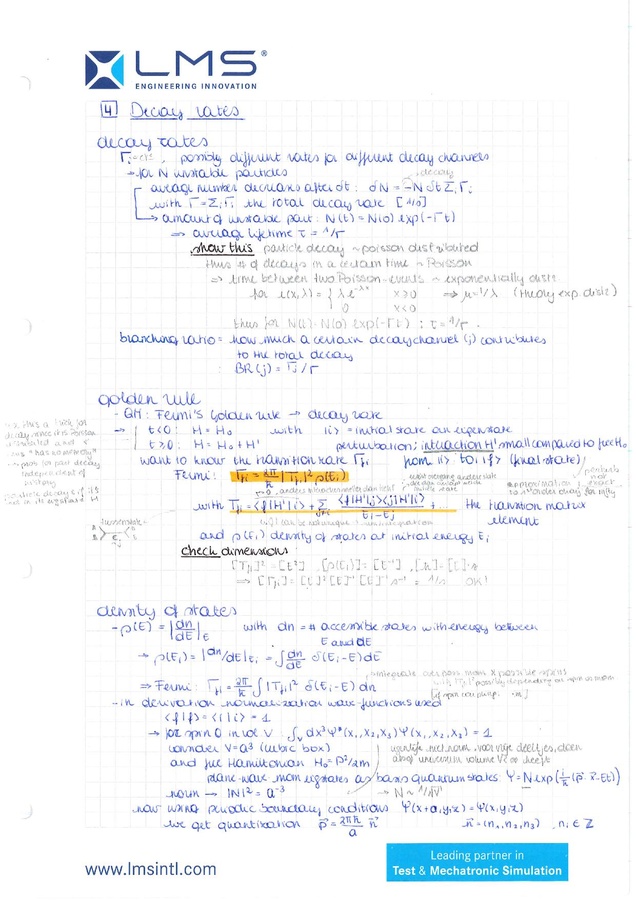 LMS®
ENGINEERING INNOVATION
4 Decay rates
decay rates
possibly different rates for different decay channels
→ for N unstable particles
decay
average number decreases after δt: δN = -N δt Σᵢ Γᵢ
with Γ = Σᵢ Γᵢ the total decay rate [1/s]
→ amount of unstable part: N(t) = N(0) exp(-Γt)
⇒ average lifetime τ = 1/Γ
show this particle decay ~ poisson distributed
thus # of decays in a certain time ~ Poisson
⇒ time between two Poisson-events ~ exponentially distr
λe^-λx x≥0 ⇒ μ=1/λ (theory exp. distr)
0 x<0
thus for N(t)=N(0) exp(-Γt): τ = 1/Γ.
branching ratio = how much a certain decay channel (j) contributes
to the total decay
: BR(j) = Γj/Γ
golden rule
- QM: Fermi's Golden rule → decay rate
→ t<0: H = H₀ with |i> = initial state an eigenstate
t≥0: H = H₀ + H' perturbation; interaction H' small compared to free H₀
want to know the transition rate Γfi from |i> to |f> (final state)
Fermi: Γfi = 2π/ħ |Tfi|² ρ(Ei)
with Tfi = <f|H'|i> + Σj≠i <f|H'|j><j|H'|i> / Ei-Ej + ... the transition matrix
element
and ρ(Ei) density of states at initial energy Ei
check dimensions:
[Tfi]² = [E²] [ρ(Ei)] = [E⁻¹] , [ħ] = [E]·s
⇒ [Γfi] = [E]²[E]⁻¹[E]⁻¹s⁻¹ = 1/s OK!
density of states
- ρ(E) = |dn/dE|E with dn = # accessible states with energy between
E and dE
→ ρ(Ei) = |dn/dE|Ei = ∫ dn/dE δ(Ei-E) dE
⇒ Fermi: Γfi = 2π/ħ ∫ |Tfi|² δ(Ei-E) dn
- in derivation normalization wave-functions used
<f|f> = <i|i> = 1
→ for spin 0 in vol V: ∫v dx³ Ψ*(x₁,x₂,x₃) Ψ(x₁,x₂,x₃) = 1
consider V=a³ (cubic box)
and free Hamiltonian H₀ = p²/2m
plane wave mom eigstates as basis quantum states: Ψ = N exp(i/ħ (p⃗·x⃗ - Et))
norm → |N|² = a⁻³ → N ~ 1/√V
now using periodic boundary conditions Ψ(x+a,y,z) = Ψ(x,y,z)
we get quantization p⃗ = 2πħ/a n⃗ n⃗ = (n₁,n₂,n₃) , nᵢ ∈ Z
www.lmsintl.com
Leading partner in
Test & Mechatronic Simulation